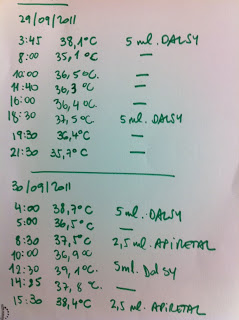 29/09/2011
3:45 38,1ºC 5 ml. DALSY
8:00 35,1ºC —
10:00 36,5ºC. —
11:40 36,3ºC —
16:00 36,4ºC. —
18:30 37,5ºC 5 ml. DALSY
19:30 36,4ºC —
21:30 35,7ºC —
30/09/2011
4:00 38,7ºC 5 ml. DALSY
5:00 36,5ºC —
8:30 37,5ºC 2,5 ml. APIRETAL
10:00 36,9ºC —
12:30 39,1ºC. 5ml. Dalsy
14:25 37,8ºC. —
15:30 38,4ºC 2,5 ml. APIRETAL